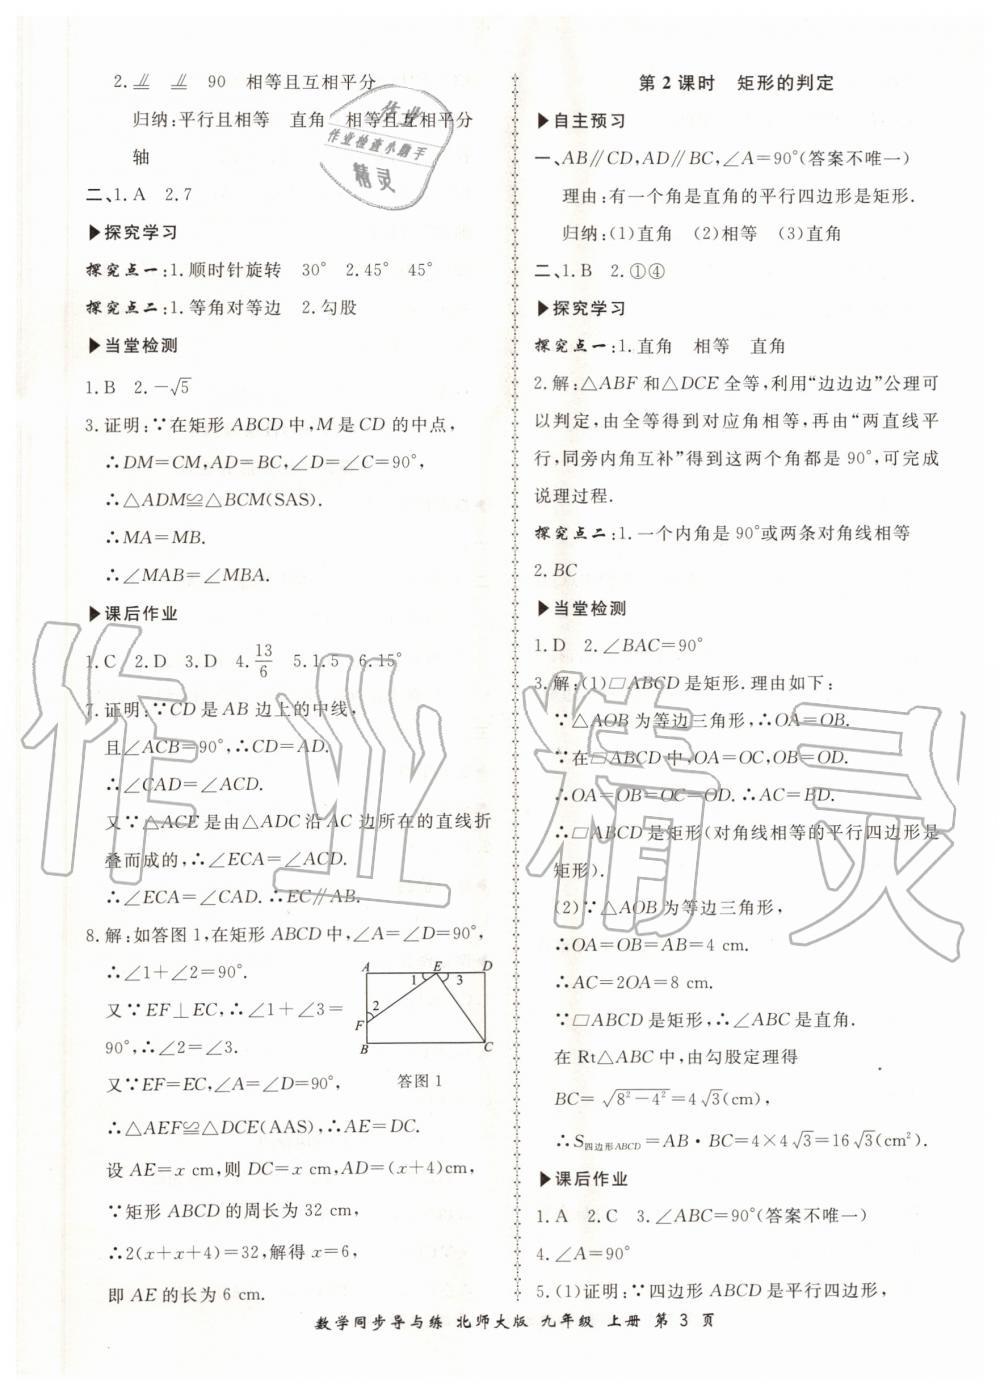 2.⫽ ⫽ 90 相等且互相平分
归纳:平行且相等 直角 相等且互相平分
轴
二、1.A 2.7
▶探究学习
探究点一:1.顺时针旋转 30° 2.45° 45°
探究点二:1.等角对等边 2.勾股
▶当堂检测
1.B 2.-√5
3.证明:∵在矩形 ABCD 中,M 是 CD 的中点,
∴DM=CM,AD=BC,∠D=∠C=90°,
∴△ADM≌△BCM(SAS).
∴MA=MB.
∴∠MAB=∠MBA.
▶课后作业
1.C 2.D 3.D 4.13/6 5.1.5 6.15°
7.证明:∵CD 是 AB 边上的中线,
且∠ACB=90°,∴CD=AD.
∴∠CAD=∠ACD.
又∵△ACE 是由△ADC 沿 AC 边所在的直线折
叠而成的,∴∠ECA=∠ACD.
∴∠ECA=∠CAD.∴EC∥AB.
8.解:如答图 1,在矩形 ABCD 中,∠A=∠D=90°,
∴∠1+∠2=90°.
又∵EF⊥EC,∴∠1+∠3=
90°,∴∠2=∠3.
又∵EF=EC,∠A=∠D=90°,
∴△AEF≌△DCE(AAS),∴AE=DC.
设 AE=x cm,则 DC=x cm,AD=(x+4)cm,
∵矩形 ABCD 的周长为 32 cm,
∴2(x+x+4)=32,解得 x=6,
即 AE 的长为 6 cm.
A E D
1 3
2
F
B C
答图 1
第 2 课时 矩形的判定
▶自主预习
一、AB∥CD,AD∥BC,∠A=90°(答案不唯一)
理由:有一个角是直角的平行四边形是矩形.
归纳:(1)直角 (2)相等 (3)直角
二、1.B 2.①④
▶探究学习
探究点一:1.直角 相等 直角
2.解:△ABF 和△DCE 全等,利用“边边边”公理可
以判定,由全等得到对应角相等,再由“两直线平
行,同旁内角互补”得到这两个角都是 90°,可完成
说理过程.
探究点二:1.一个内角是 90°或两条对角线相等
2.BC
▶当堂检测
1.D 2.∠BAC=90°
3.解:(1)□ABCD 是矩形.理由如下:
∵△AOB 为等边三角形,∴OA=OB.
∵在□ABCD 中,OA=OC,OB=OD.
∴OA=OB=OC=OD.∴AC=BD.
∴□ABCD 是矩形(对角线相等的平行四边形是
矩形).
(2)∵△AOB 为等边三角形,
∴OA=OB=AB=4 cm.
∴AC=2OA=8 cm.
∵□ABCD 是矩形,∴∠ABC 是直角.
在 Rt△ABC 中,由勾股定理得
BC=√(8²-4²)=4√3(cm),
∴S四边形ABCD=AB·BC=4×4√3=16√3(cm²).
▶课后作业
1.A 2.C 3.∠ABC=90°(答案不唯一)
4.∠A=90°
5.(1)证明:∵四边形 ABCD 是平行四边形,
数学同步导与练 北师大版 九年级 上册 第 3 页
作业
作业检查小助手
精灵
作业精灵